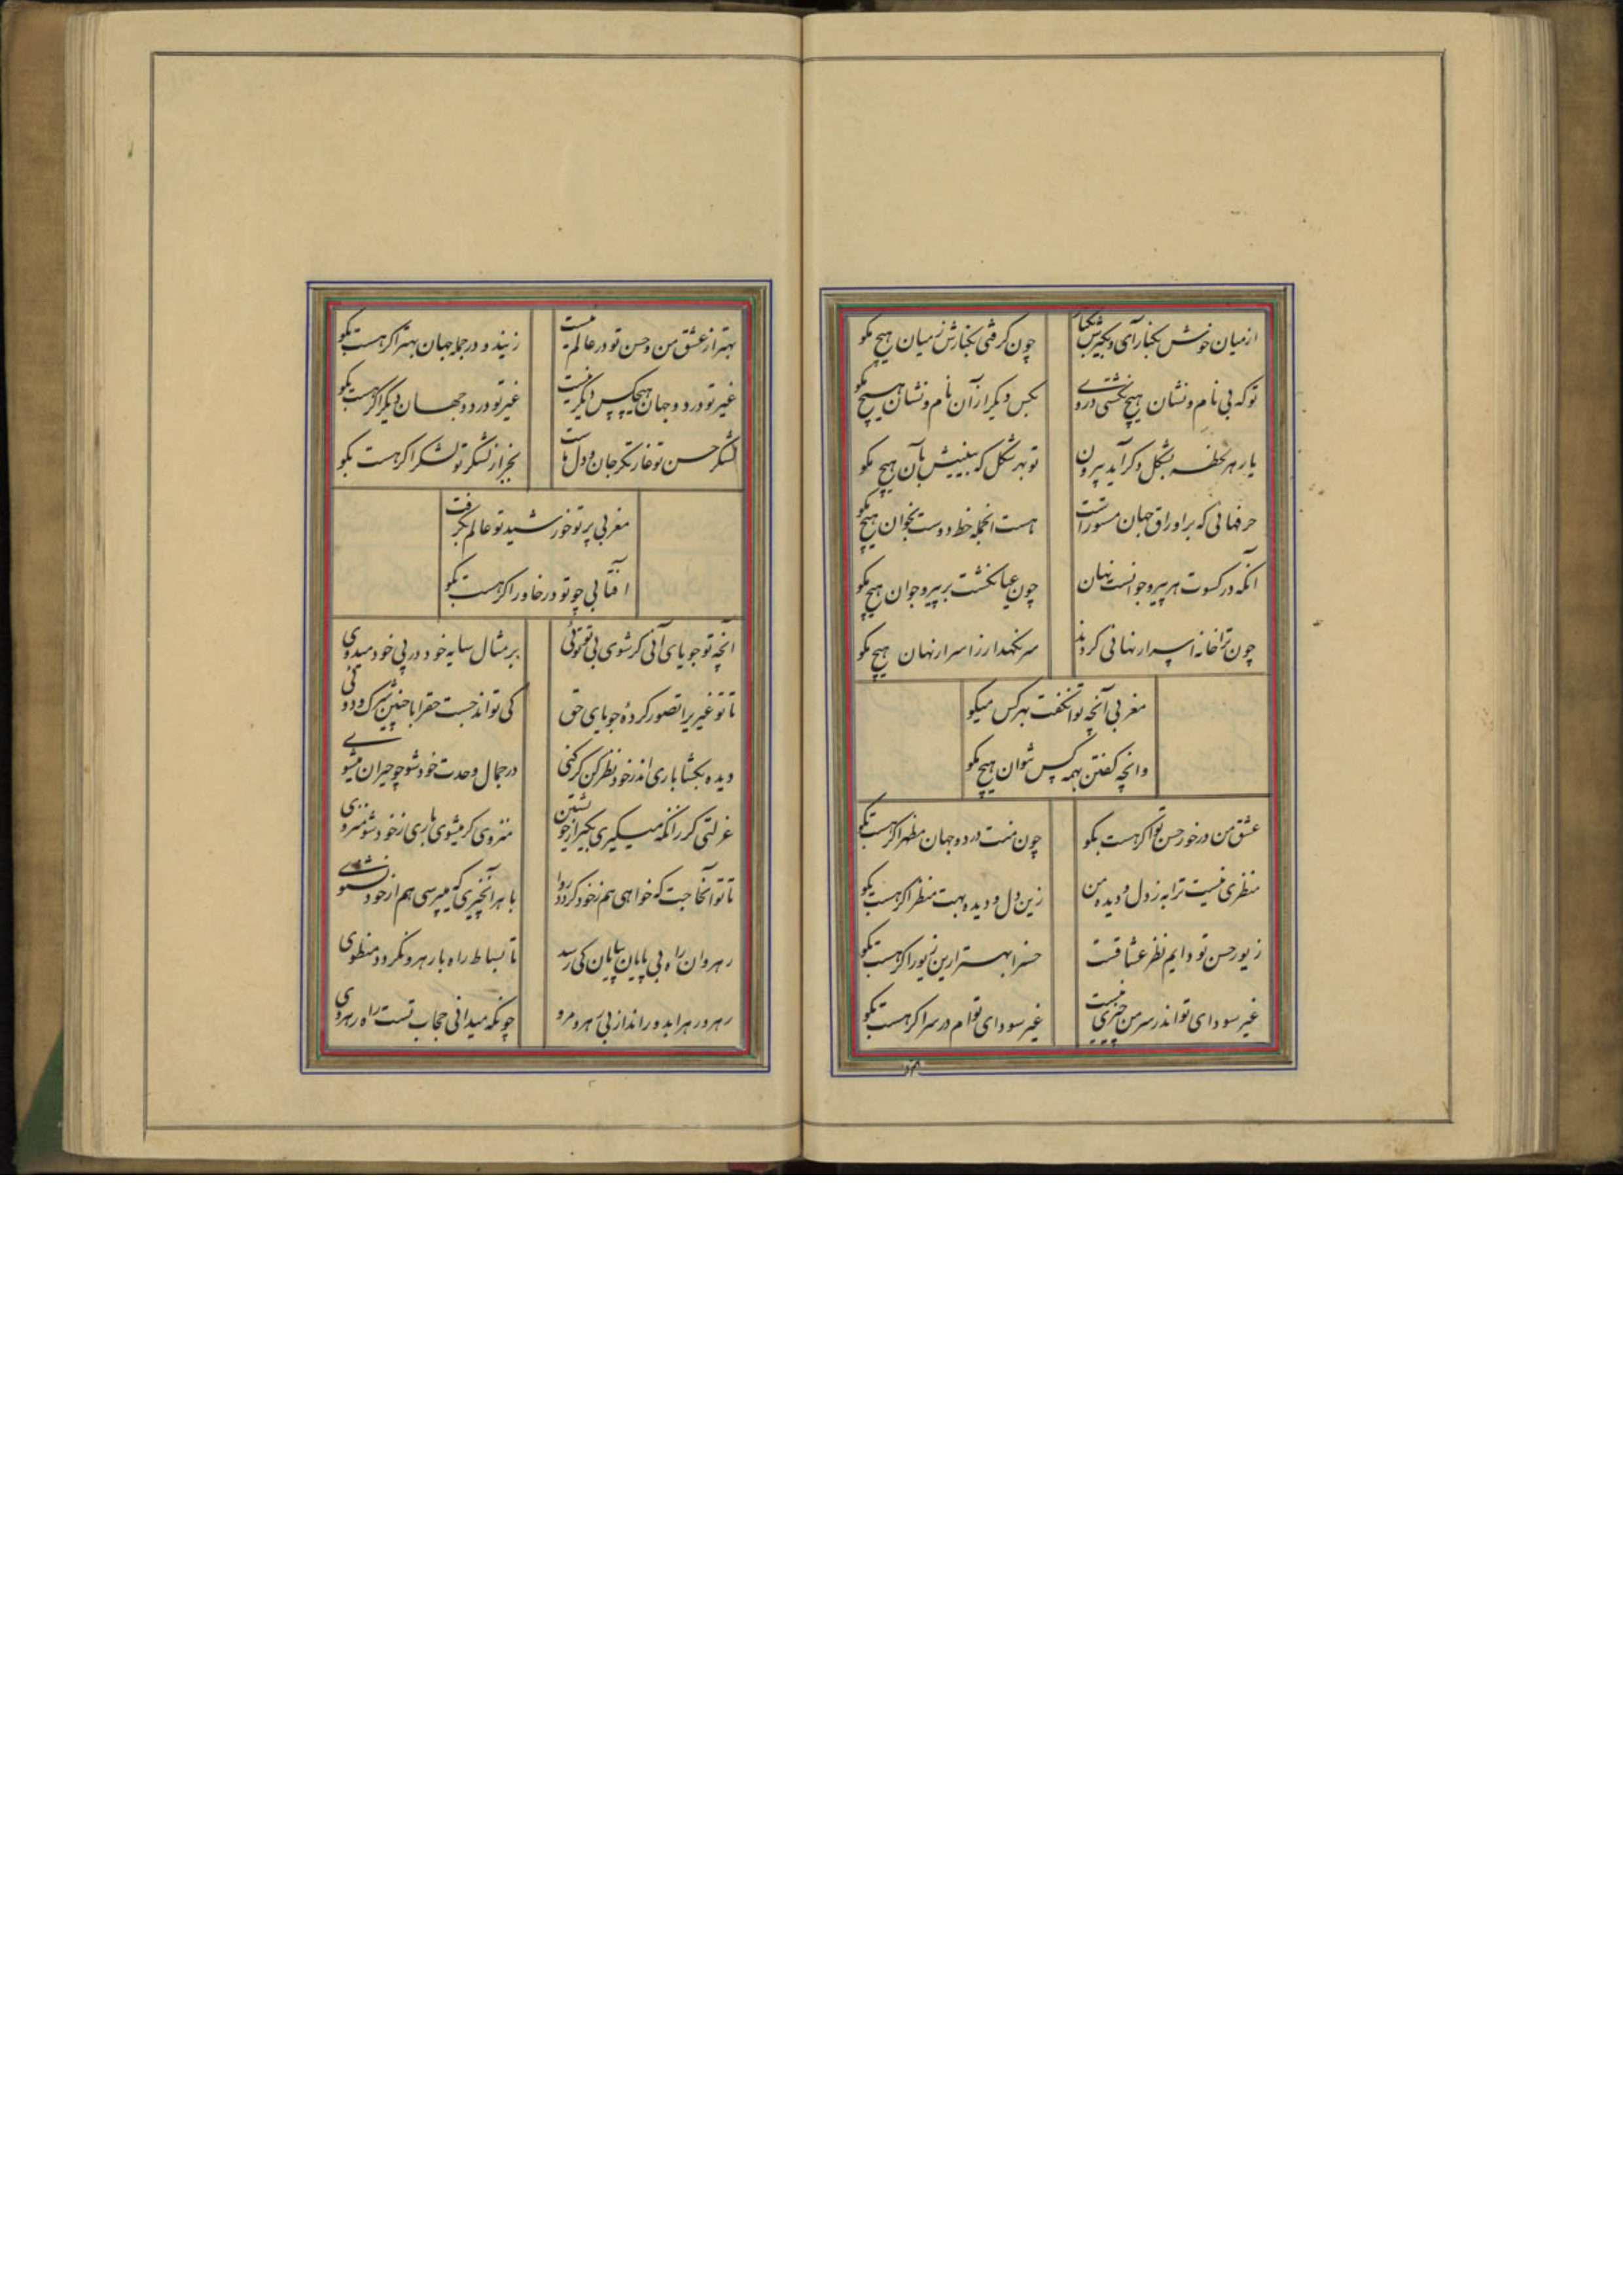 ازمیان خوش بکنار آی و بگیرش بکنار
چون گرفتی بکنارش زمیان هیچ مگو
تو که بی نام و نشان هیچ نگشتی در وی
بکس دیگر از آن نام و نشان هیچ مگو
یار هر لحظه بشکل دگر آید بیرون
تو بهر شکل که بینیش بآن هیچ مگو
حرفهائی که بر اوراق جهان مسطور است
هست انجمله خط دوست بخوان هیچ مگو
آنکه در کسوت هر پیر و جوانست نهان
چون عیان گشت بر پیر و جوان هیچ مگو
چون ترا خانه اسرار نهانی کردند
سر نگهدار ز اسرار نهان هیچ مگو
مغربی آنچه توان گفت بهر کس میگو
وانچه گفتن بهمه کس نتوان هیچ مگو
عشق من در خور حسن تو اگر هست بگو
چون منت در دو جهان مظهر اگر هست بگو
منظری نیست ترا به ز دل و دیده من
زین دل و دیده بهت منظر اگر هست بگو
زیور حسن تو دایم نظر عشاقست
حسن را بهتر ازین زیور اگر هست بگو
غیر سودای تو اندر سر من چیزی نیست
غیر سودای توام در سر اگر هست بگو
بهتر از عشق من و حسن تو در عالم نیست
زیندو در جمله جهان بهتر اگر هست بگو
غیر تو در دو جهان هیچکس دیگر نیست
غیر تو در دو جهان دیگر اگر هست بگو
لشکر حسن تو غارتگر جان و دل ماست
بجز از لشکر تو لشکر اگر هست بگو
مغربی پرتو خورشید تو عالم بگرفت
آفتابی چو تو در خاور اگر هست بگو
آنچه تو جویای آنی گر شوی بی تو توئی
بر مثال سایه خود در پی خود میدوی
تا تو غیری را تصور کرده جویای حق
کی تواند جست حق را با چنین شرک و دوئی
دیده بگشا باری اندر خود نظر کن گر کنی
در جمال وحدت خود شو چو حیران میشوی
عزلتی گر زانکه میگیری بگیر از خویشتن
منزوی گر میشوی باری ز خود شو منزوی
تا تو آنحاجت که خواهی هم ز خود گردد روا
تا هر آنچیزی که میپرسی هم از خود بشنوی
رهروان را راه بی پایان بپایان کی رسد
تا بساط راه با رهرو نگردد منطوی
رهرو رهرا بدو رانداز بی رهرو مرو
چونکه میدانی حجاب تست راه رهروی